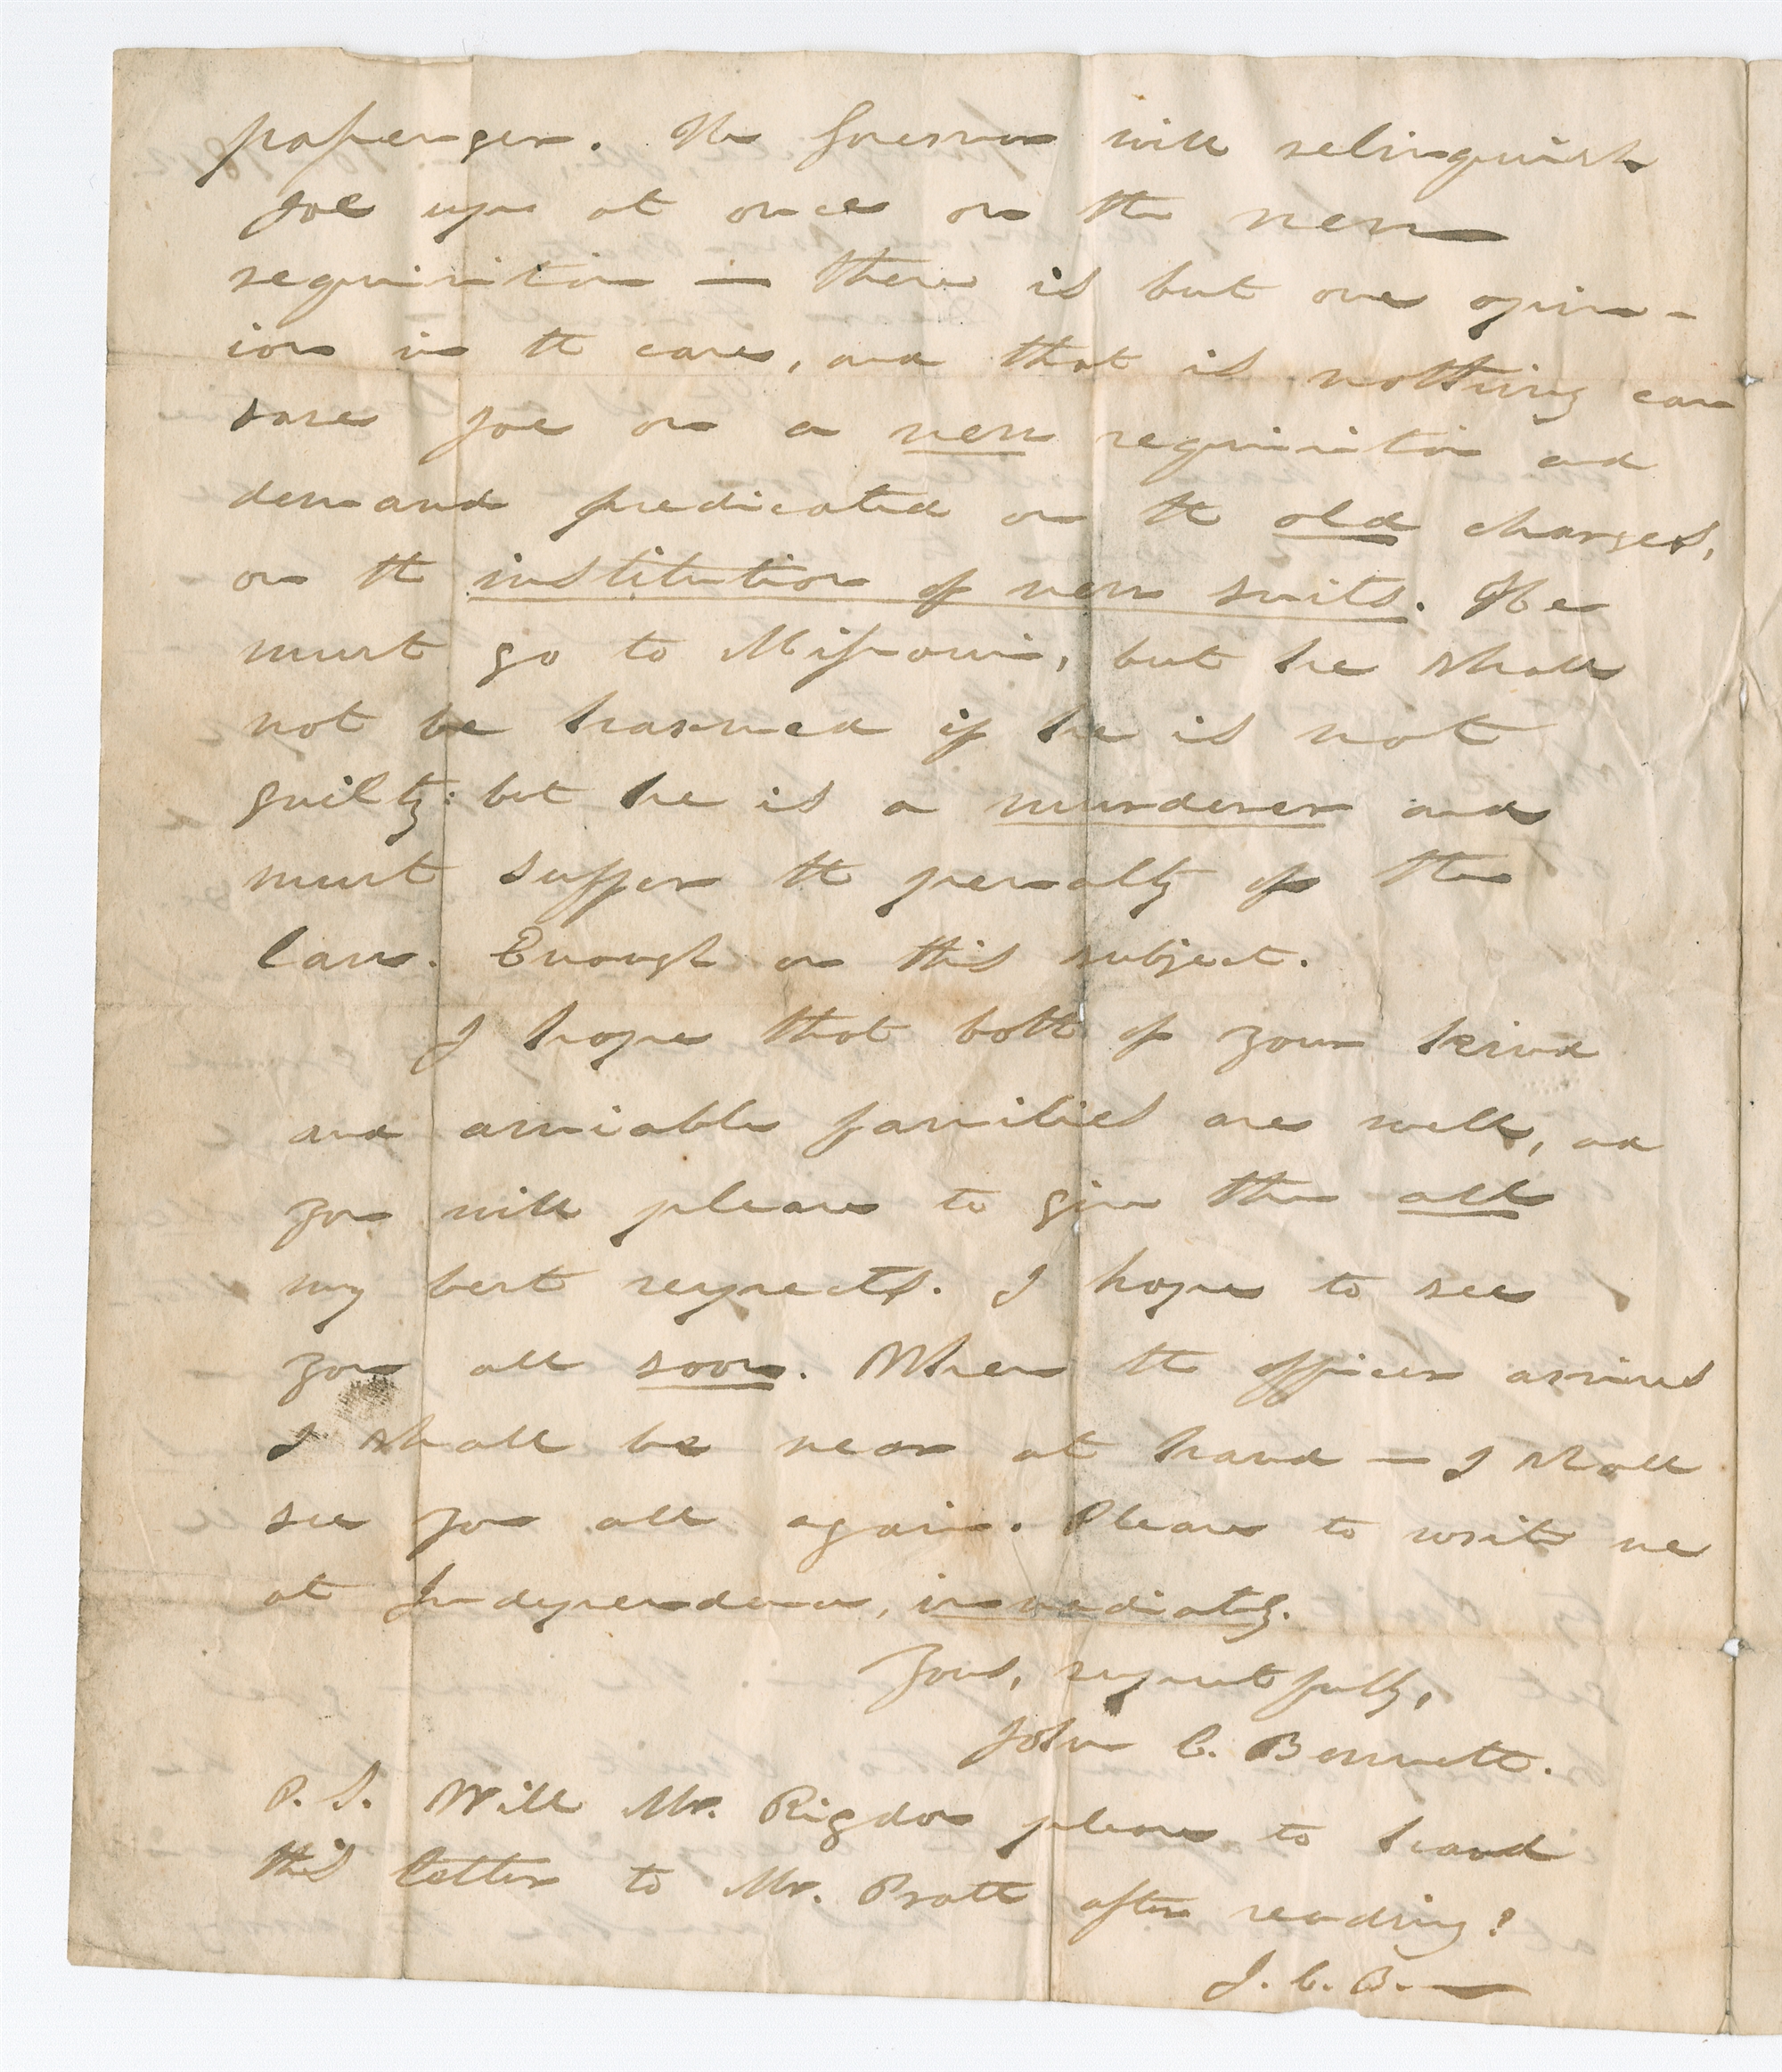 passenger. The Governor will relinquish
Joe up at once on the new
requisition — there is but one opin-
ion in the case, and that is nothing can
save Joe on a new requisition and
demand predicated on the old charges,
on the institution of new suits. He
must go to Missouri, but he shall
not be harmed if he is not
guilty: but he is a murderer and
must suffer the penalty of the
law. Enough on this subject.
I hope that both of your kind
and amiable families are well, and
you will please to give them all
my best respects. I hope to see
you all soon. When the officer arrives
I shall be near at hand — I shall
see you all again. Please to write me
at Independence, immediately.
Yours, respectfully,
John C. Bennett.
P.S. Will Mr. Rigdon please to hand
this letter to Mr. Pratt after reading?
J. C. B.—